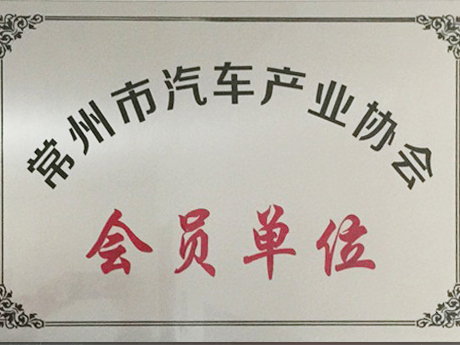 常州市汽车产业协会
会员单位